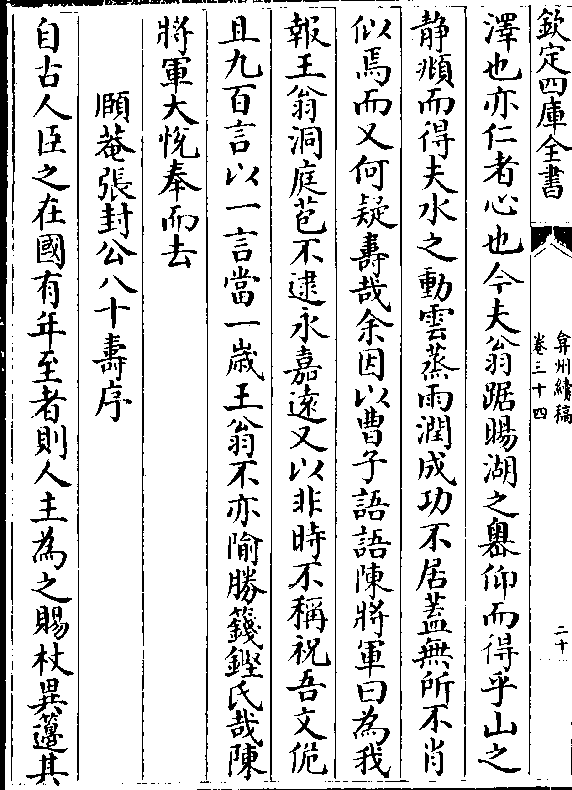 欽定四庫全書
弇州續稿
卷三十四
二十
澤也亦仁者心也今夫翁踞暘湖之㠗仰而得乎山之
静頫而得夫水之動雲蒸雨潤成功不居蓋無所不肖
似焉而又何疑壽哉余因以曹子語語陳將軍曰為我
報王翁洞庭苞不逮永嘉遠又以非時不稱祝吾文侂
且九百言以一言當一歲王翁不亦隃勝籛鏗氏哉陳
將軍大悅奉而去
頤菴張封公八十壽序
自古人臣之在國有年至者則人主為之賜杖異籩其